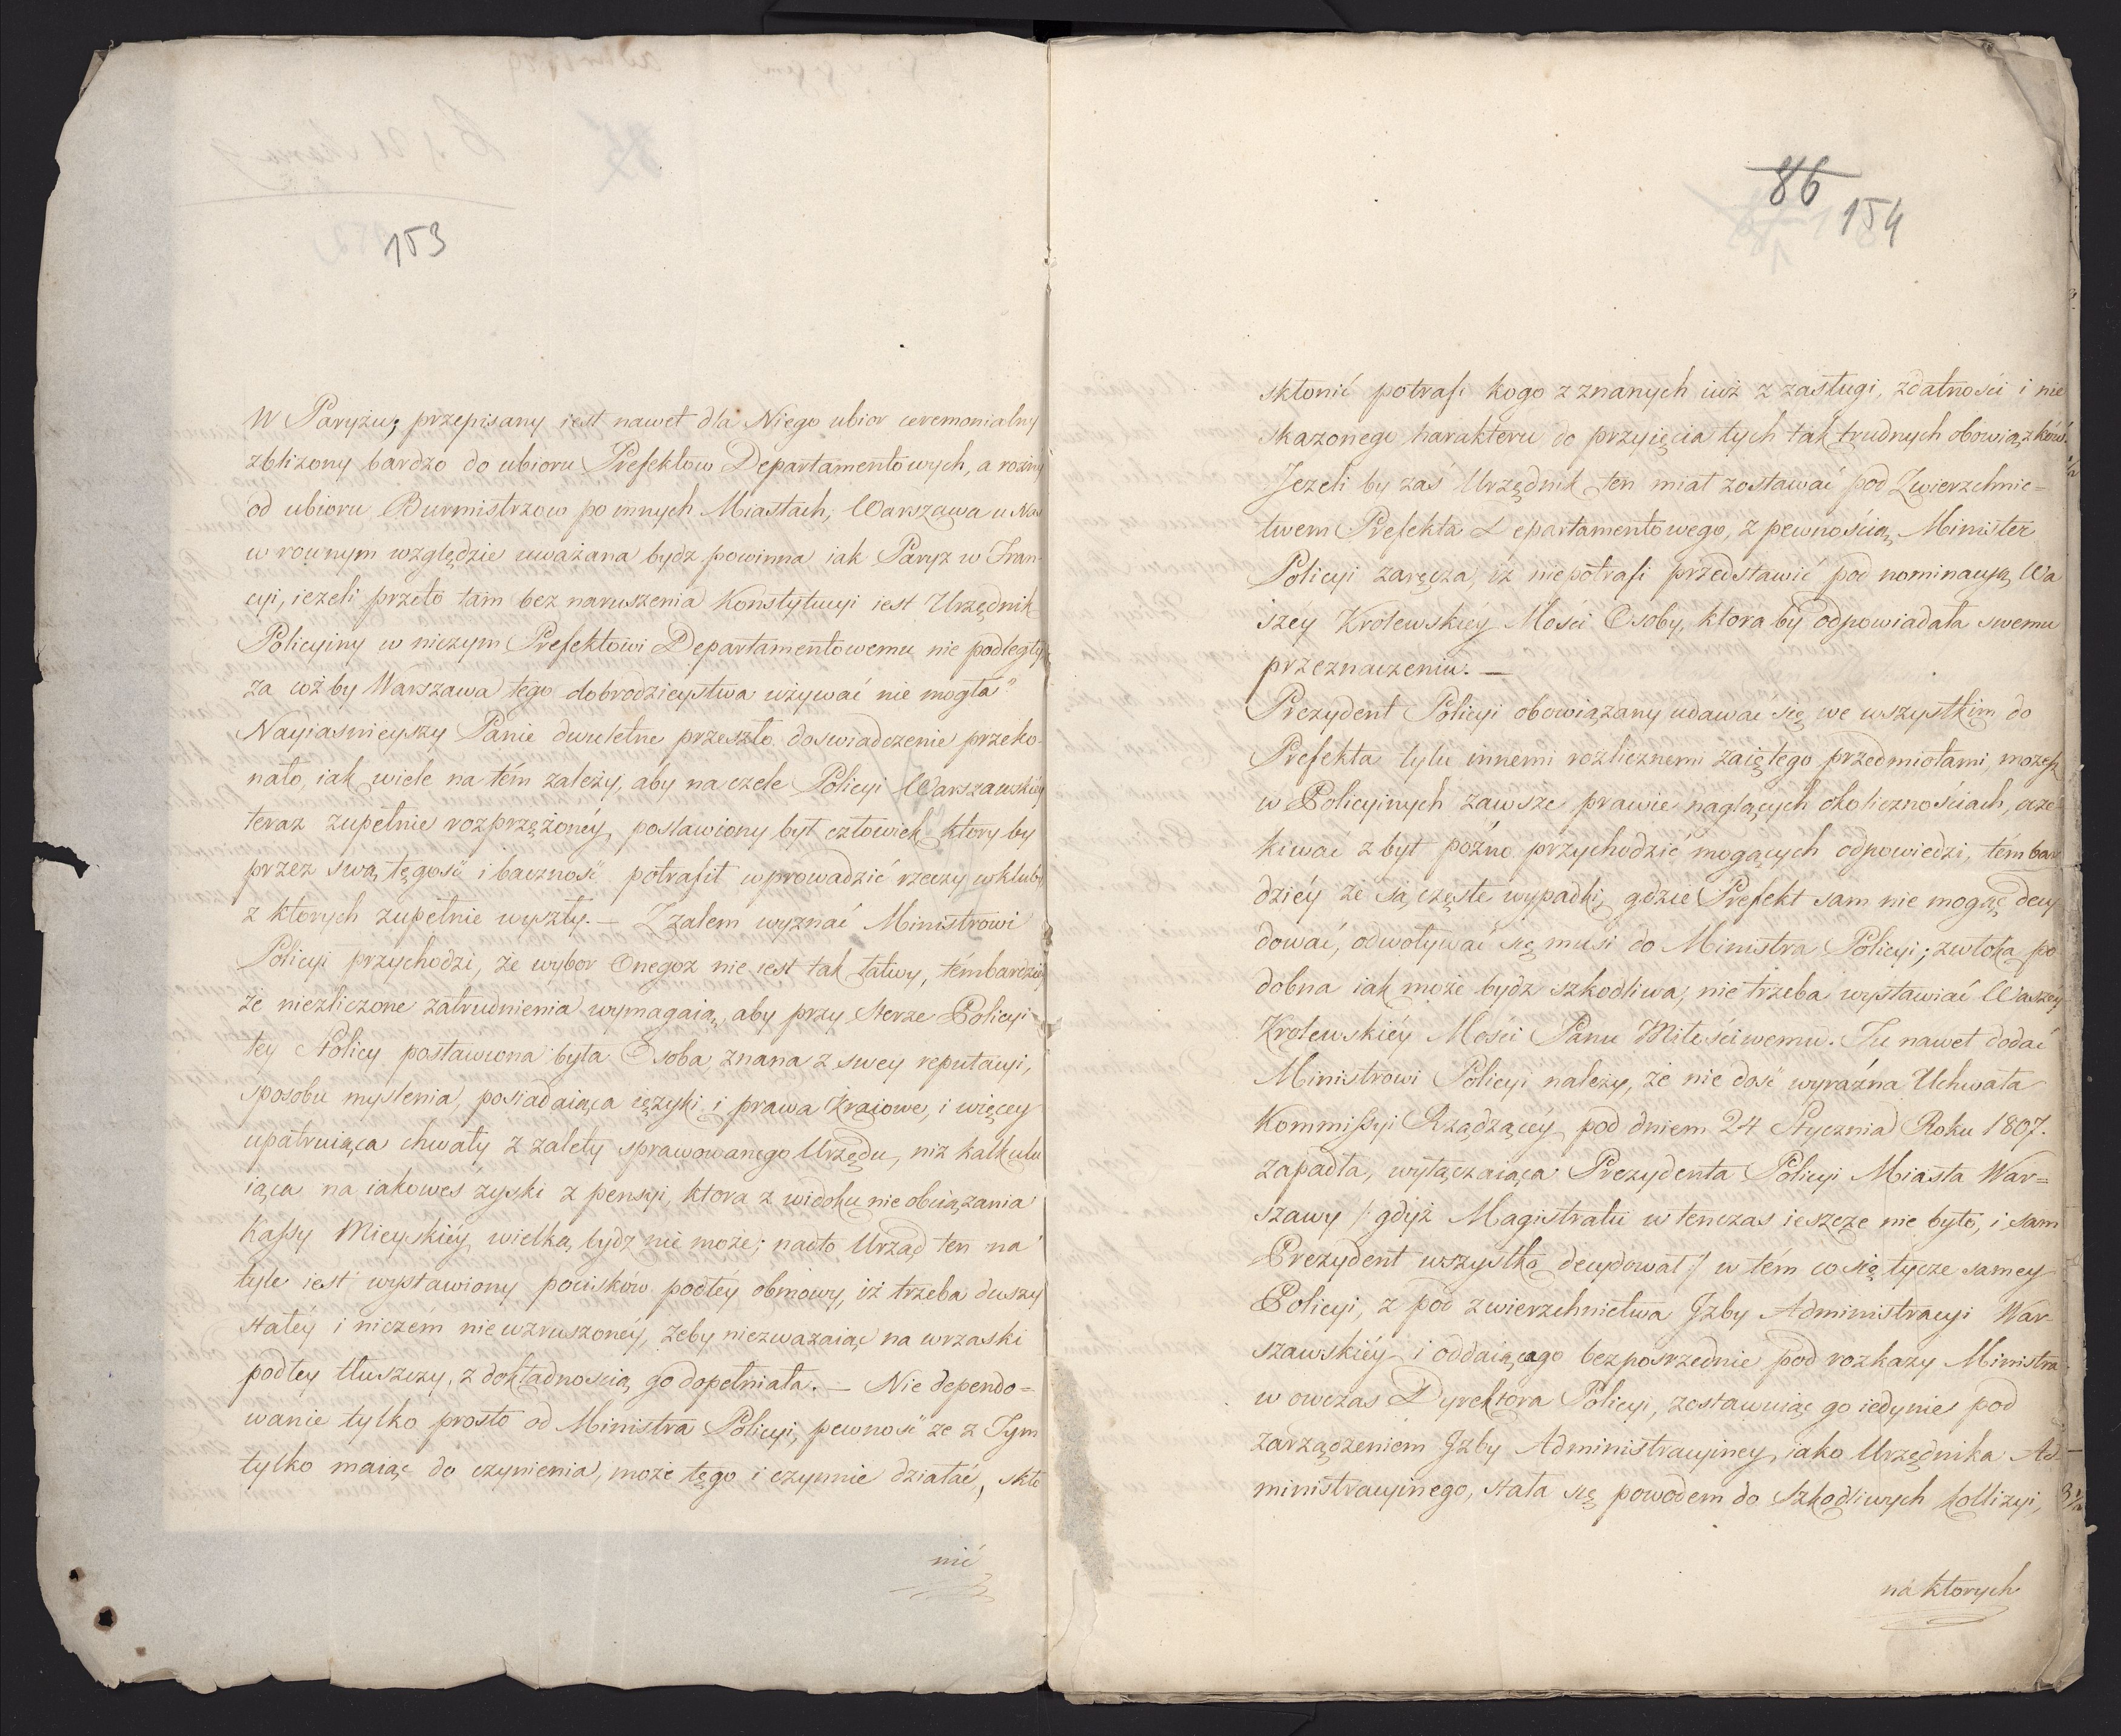 153
W Paryżu; przepisany iest nawet dla Niego ubior ceremonialny
zbliżony bardzo do ubioru Prefektow Departamentowych, a rożny
od ubioru Burmistrzow po innych Miastach, Warszawa u Nas
w rownym względzie uważana bydz powinna iak Paryż w Fran-
cyi, ieżeli przeto tam bez naruszenia Konstytucyi iest Urzędnik
Policyiny w niczym Prefektowi Departamentowemu nie podległy
za coż by Warszawa tego dobrodzieystwa używać nie mogła
Nayiaśnieyszy Panie dwuletne przeszło doswiadczenie przeko-
nało, iak wiele na tém zależy, aby na czele Policyi Warszawskiéy
teraz zupełnie rozprzężonéy, postawiony był człowiek ktory by
przez swą tęgość i baczność potrafił wprowadzić rzeczy w kluby
z ktorych zupełnie wyszły. — Z żalem wyznać Ministrowi
Policyi przychodzi, że wybor Onegoż nie iest tak łatwy, témbardziéy
że niezliczone zatrudnienia wymagaią, aby przy sterze Policyi
tey Stolicy postawiona była Osoba, znana z swey reputacyi,
sposobu myslenia, posiadaiąca ięzyki i prawa Kraiowe, i więcey
upatruiąca chwały z zalety sprawowanego Urzędu, niż kalkulu
iąca na iakoweś zyski z pensyi, ktora z widoku nie obciążania
Kassy Mieyskiéy wielką bydz nie może; nadto Urząd ten na
tyle iest wystawiony pocisków podłéy obmowy, iż trzeba duszy
stałéy i niczém niewzruszonéy, żeby niezważaiąc na wrzaski
podłey tłuszczy, z dokładnością go dopełniała. — Nie dependo=
wanie tylko prosto od Ministra Policyi, pewność że z Tym
tylko maiąc do czynienia, może tęgo i czynnie działać, skło
nić
86
154
skłonić potrafi kogo z znanych iuż z zasługi, zdatności i nie
skażonego harakteru do przyięcia tych tak trudnych obowiązków.
Jeżeli by zaś Urzędnik ten miał zostawać pod Zwierzchnic=
twem Prefekta Departamentowego, z pewnością Minister
Policyi zaręcza, iż niepotrafi przedstawić pod nominacyą Wa
széy Królewskiéy Mości Osoby, ktora by odpowiadała swemu
przeznaczeniu. —
Prezydent Policyi obowiązany udawać się we wszystkim do
Prefekta tylu innemi rozlicznemi zaiętego przedmiotami, możesz
w Policyinych zawsze prawie naglących okolicznościach, ocze-
kiwać zbyt późno przychodzić mogących odpowiedzi, témbar
dziéy że są częste wypadki, gdzie Prefekt sam nie mogąc decy
dować, odwoływać się musi do Ministra Policyi; zwłoka po
dobna iak może bydz szkodliwa, nie trzeba wystawiać Waszéy
Królewskiéy Mości Panu Miłościwemu. Tu nawet dodać
Ministrowi Policyi należy, że nie dość wyraźna Uchwała
Kommissyi Rządzącéy pod dniem 24 Stycznia Roku 1807.
zapadła, wyłączaiąca Prezydenta Policyi Miasta War=
szawy /: gdyż Magistratu w tenczas ieszcze nie było, i sam
Prezydent wszystko decydował :/ w tém co się tycze samey
Policyi, z pod zwierzchnictwa Jzby Administracyi War-
szawskiéy i oddaiącago bezpośrzednie pod rozkazy Ministra
w owczas Dyrektora Policyi, zostawuiąc go iedynie pod
zarządzeniem Jzby Administracyiney, iako Urzędnika Ad-
ministracyinego, stała się powodem do szkodliwych kollizyi,
na ktorych